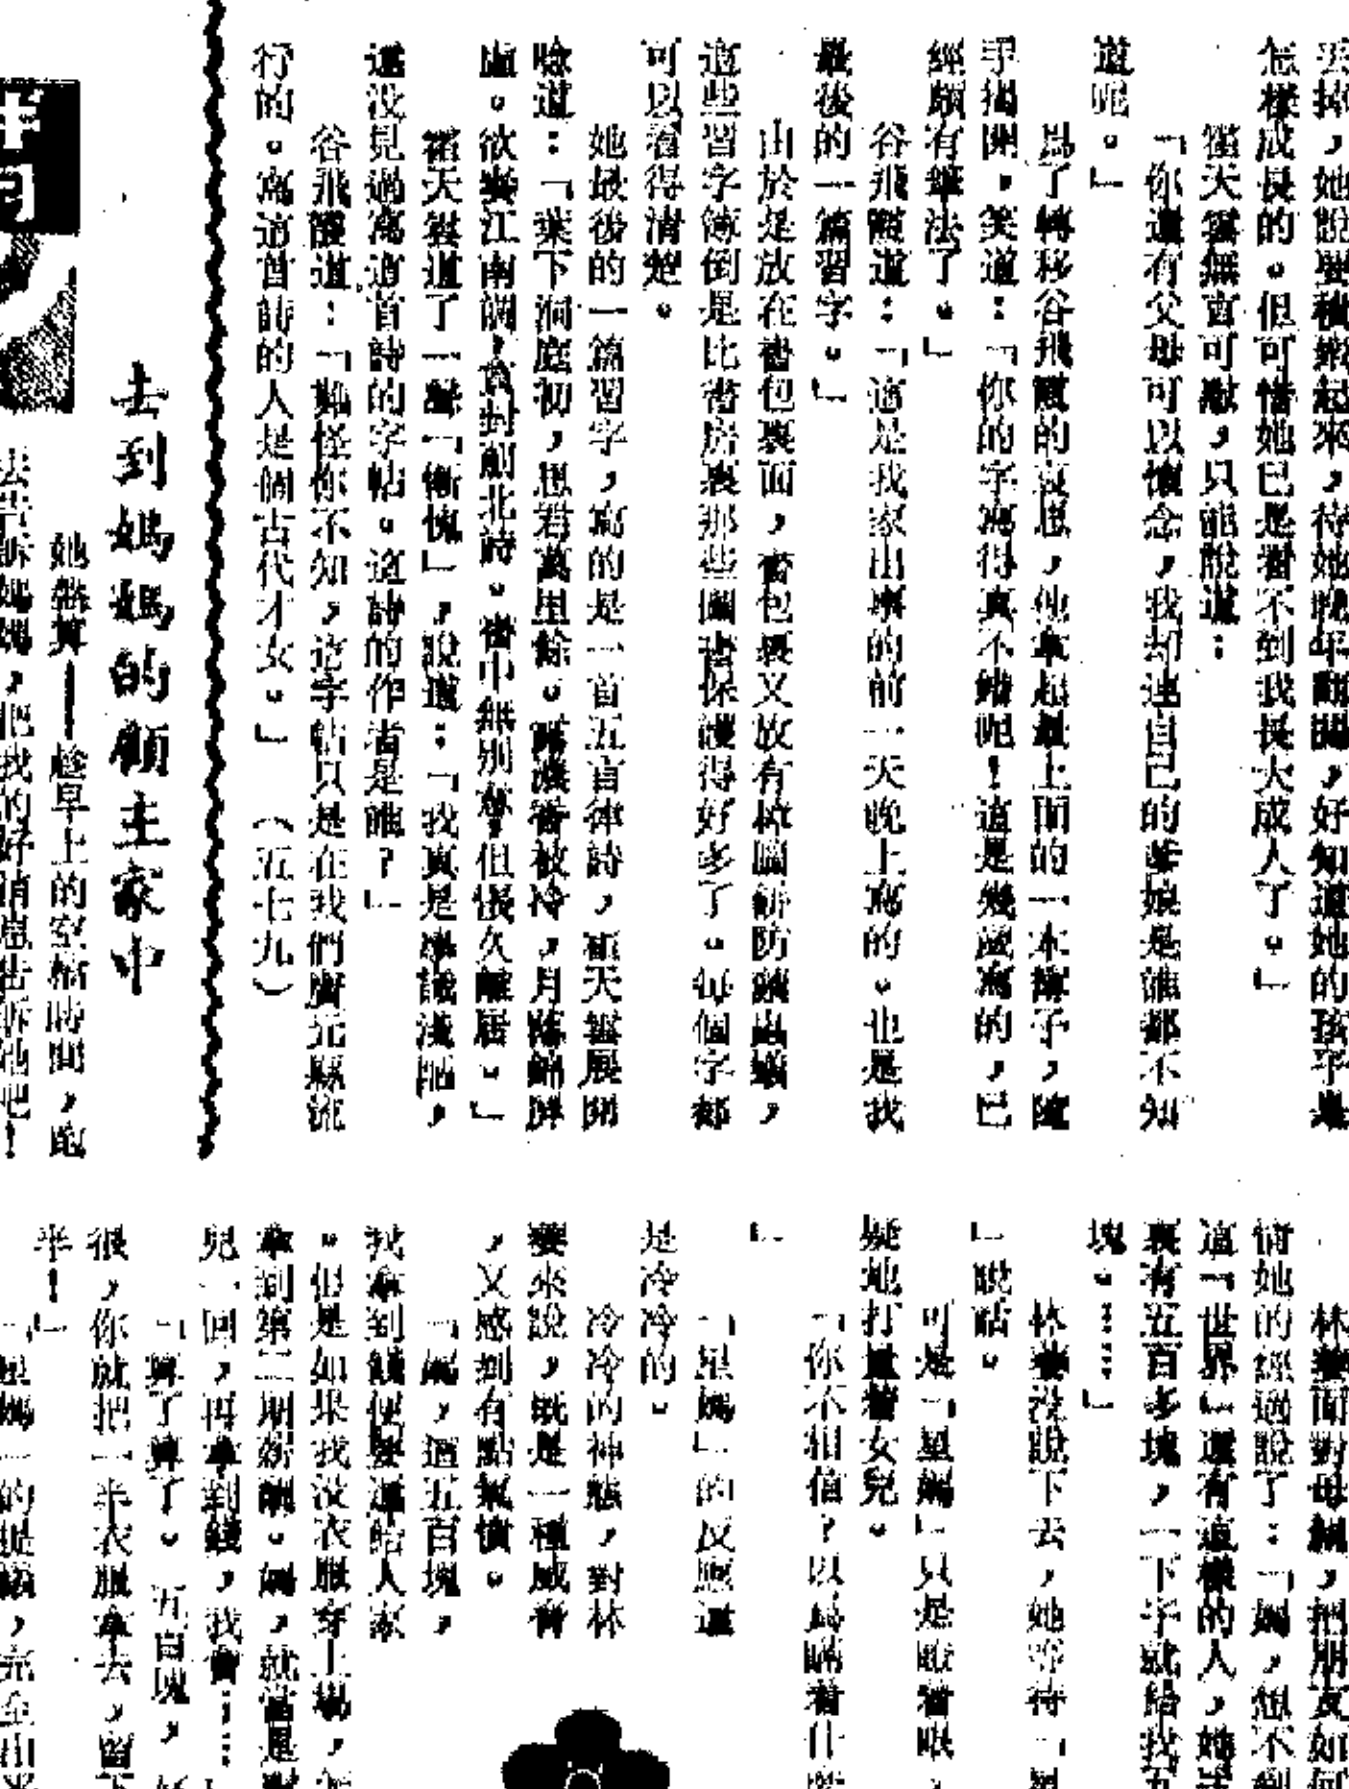 丟掉，她說要積攢起來，待她晚年翻閱，好知道她的孩子是
怎樣成長的。但可惜她已是看不到我長大成人了。」
霍天雲無言可慰，只能說道：
「你還有父母可以懷念，我却連自己的爹娘是誰都不知
道呢。」
爲了轉移谷飛霞的哀思，他拿起最上面的一本簿子，隨
手揭開，笑道：「你的字寫得真不錯呢！這是幾歲寫的，已
經頗有筆法了。」
谷飛霞道：「這是我家出事的前一天晚上寫的。也是我
最後的一篇習字。」
由於是放在書包裏面，書包裏又放有樟腦餅防蟲蟻，
這些習字簿倒是比書房裏那些圖書保護得好多了。每個字都
可以看得清楚。
她最後的一篇習字，寫的是一首五言律詩，霍天雲展開
唸道：「葉下洞庭初，思君萬里餘。露濃香被冷，月落錦屏
虛。欲奏江南調，貪封薊北詩。書中無別意，但悵久離居。」
霍天雲道了一聲「慚愧」，說道：「我真是學識淺陋，
還沒見過寫這首詩的字帖。這詩的作者是誰？」
谷飛霞道：「難怪你不知，這字帖只是在我們廣元縣流
行的。寫這首詩的人是個古代才女。」（五七九）
去到媽媽的顧主家中
她盤算——趁早上的空檔時間，跑
去告訴媽媽，把我的好消息告訴她吧！
林面對母親，把朋友如何
她的經過說了：「媽，想不到
這「世界」還有這樣的人，她
裏有五百多塊，一下子就給我
塊。……」
林沒說下去，她等待「星
」說話。
可是「星媽」只是瞪着眼，
疑地打量着女兒。
「你不相信？以爲瞞着什
」
「星媽」的反應還
是冷冷的。
冷冷的神態，對林
要來說，旣是一種威脅
，又感到有點氣憤。
「媽，這五百塊，
我拿到錢便要還給人家
。但是如果我沒衣服穿上場，
拿到第二期薪酬。媽，就當是
兒一回，再拿到錢，我會……
「算了算了。五百塊，
很，你就把一半衣服拿去，留下
半！」
「星媽」的提議，完全出